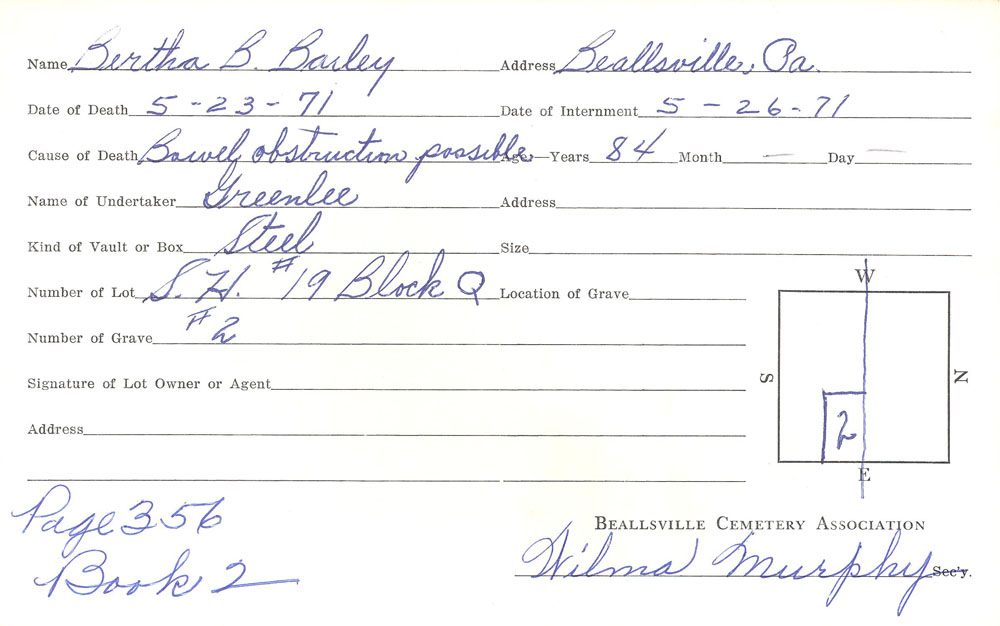 Name Bertha B. Bailey Address Beallsville, Pa.
Date of Death 5-23-71 Date of Internment 5-26-71
Cause of Death Bowel obstruction possible Age—Years 84 Month — Day —
Name of Undertaker Greenlee Address
Kind of Vault or Box Steel Size
Number of Lot S. H. #19 Block Q Location of Grave
W
Number of Grave #2
S
N
Signature of Lot Owner or Agent
Address
2
E
Page 356
Book 2
Beallsville Cemetery Association
Wilma Murphy Sec'y.